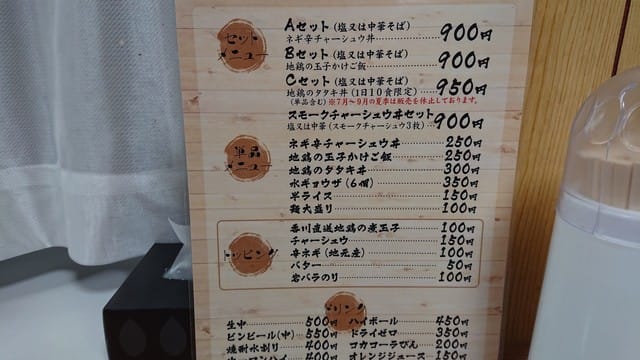 セットメニュー
Aセット（塩又は中華そば） 900円
ネギ辛チャーシュウ丼
Bセット（塩又は中華そば） 900円
地鶏の玉子かけご飯
Cセット（塩又は中華そば） 950円
地鶏のタタキ丼（1日10食限定）
（単品含む）※7月～9月の夏季は販売を休止しております。
スモークチャーシュウ丼セット 900円
塩又は中華（スモークチャーシュウ3枚）
単品メニュー
ネギ辛チャーシュウ丼 250円
地鶏の玉子かけご飯 250円
地鶏のタタキ丼 300円
水ギョウザ（6個） 350円
半ライス 150円
麺大盛り 100円
トッピング
香川直送地鶏の煮玉子 100円
チャーシュウ 150円
辛ネギ（地元産） 100円
バター 50円
岩バラのり 100円
ドリンク
生中 500円 ハイボール 450円
ビンビール（中） 550円 ドライゼロ 350円
焼酎水割り 400円 コカコーラびん 200円
400円 オレンジジュース 150円